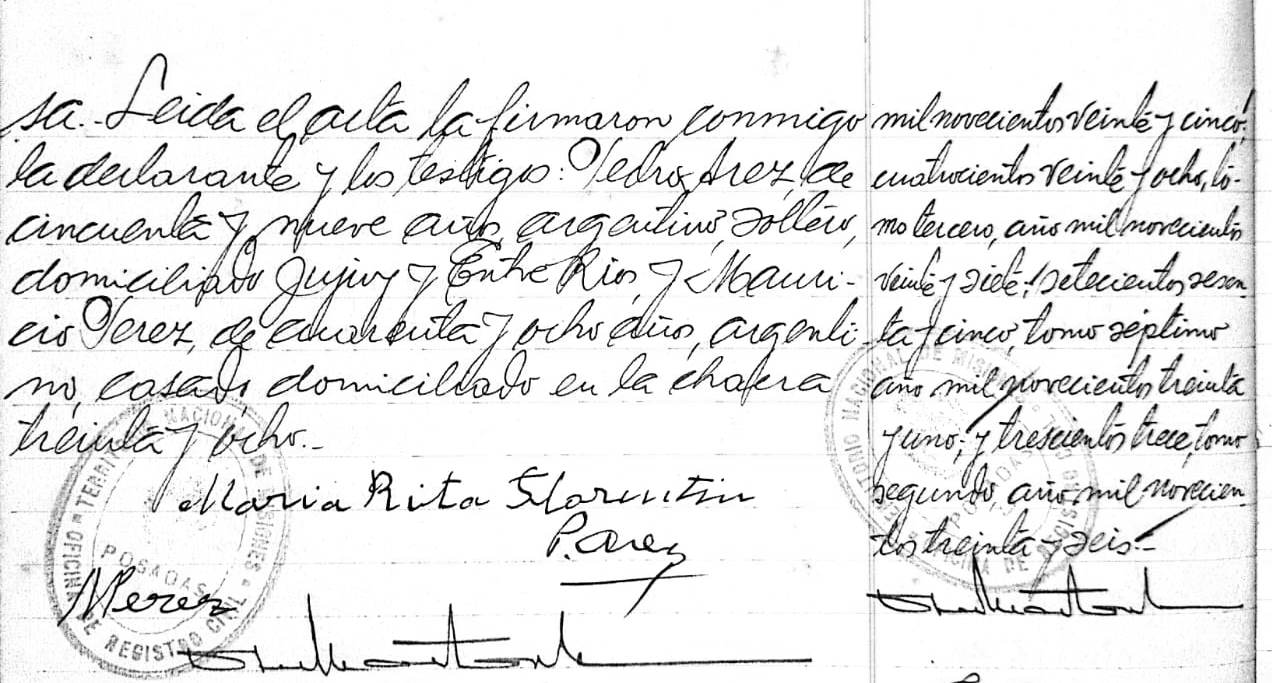 sa.- Leida el acta la firmaron conmigo
la declarante y los testigos: Pedro Arez, de
cincuenta y nueve años, argentino, soltero,
domiciliado Jujuy y Entre Rios, y Mauri-
cio Perez, de cuarenta y ocho años, argenti-
no, casado, domiciliado en la chacra
treinta y ocho.-
Maria Rita Florentin
P. Arez
M Perez
TERRITORIO NACIONAL DE MISIONES
POSADAS
OFICINA DE REGISTRO CIVIL
mil novecientos veinte y cinco;
cuatrocientos veinte y ocho, to-
mo tercero, año mil novecientos
veinte y siete; setecientos sesen-
ta y cinco, tomo séptimo
año mil novecientos treinta
y uno; y trescientos trece, tomo
segundo, año mil novecien
tos treinta y seis.-
TERRITORIO NACIONAL DE MISIONES
POSADAS
OFICINA DE REGISTRO CIVIL